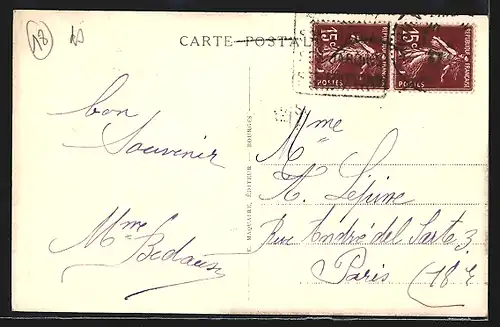 18
CARTE-POSTALE
RÉPUBLIQUE FRANÇAISE
15c
POSTES
RÉPUBLIQUE FRANÇAISE
15c
POSTES
bon
Souvenir
Mme
E. MAQUAIRE, ÉDITEUR - BOURGES
Mme
A. Lejeune
Rue André del Sarte 3
Paris (18e